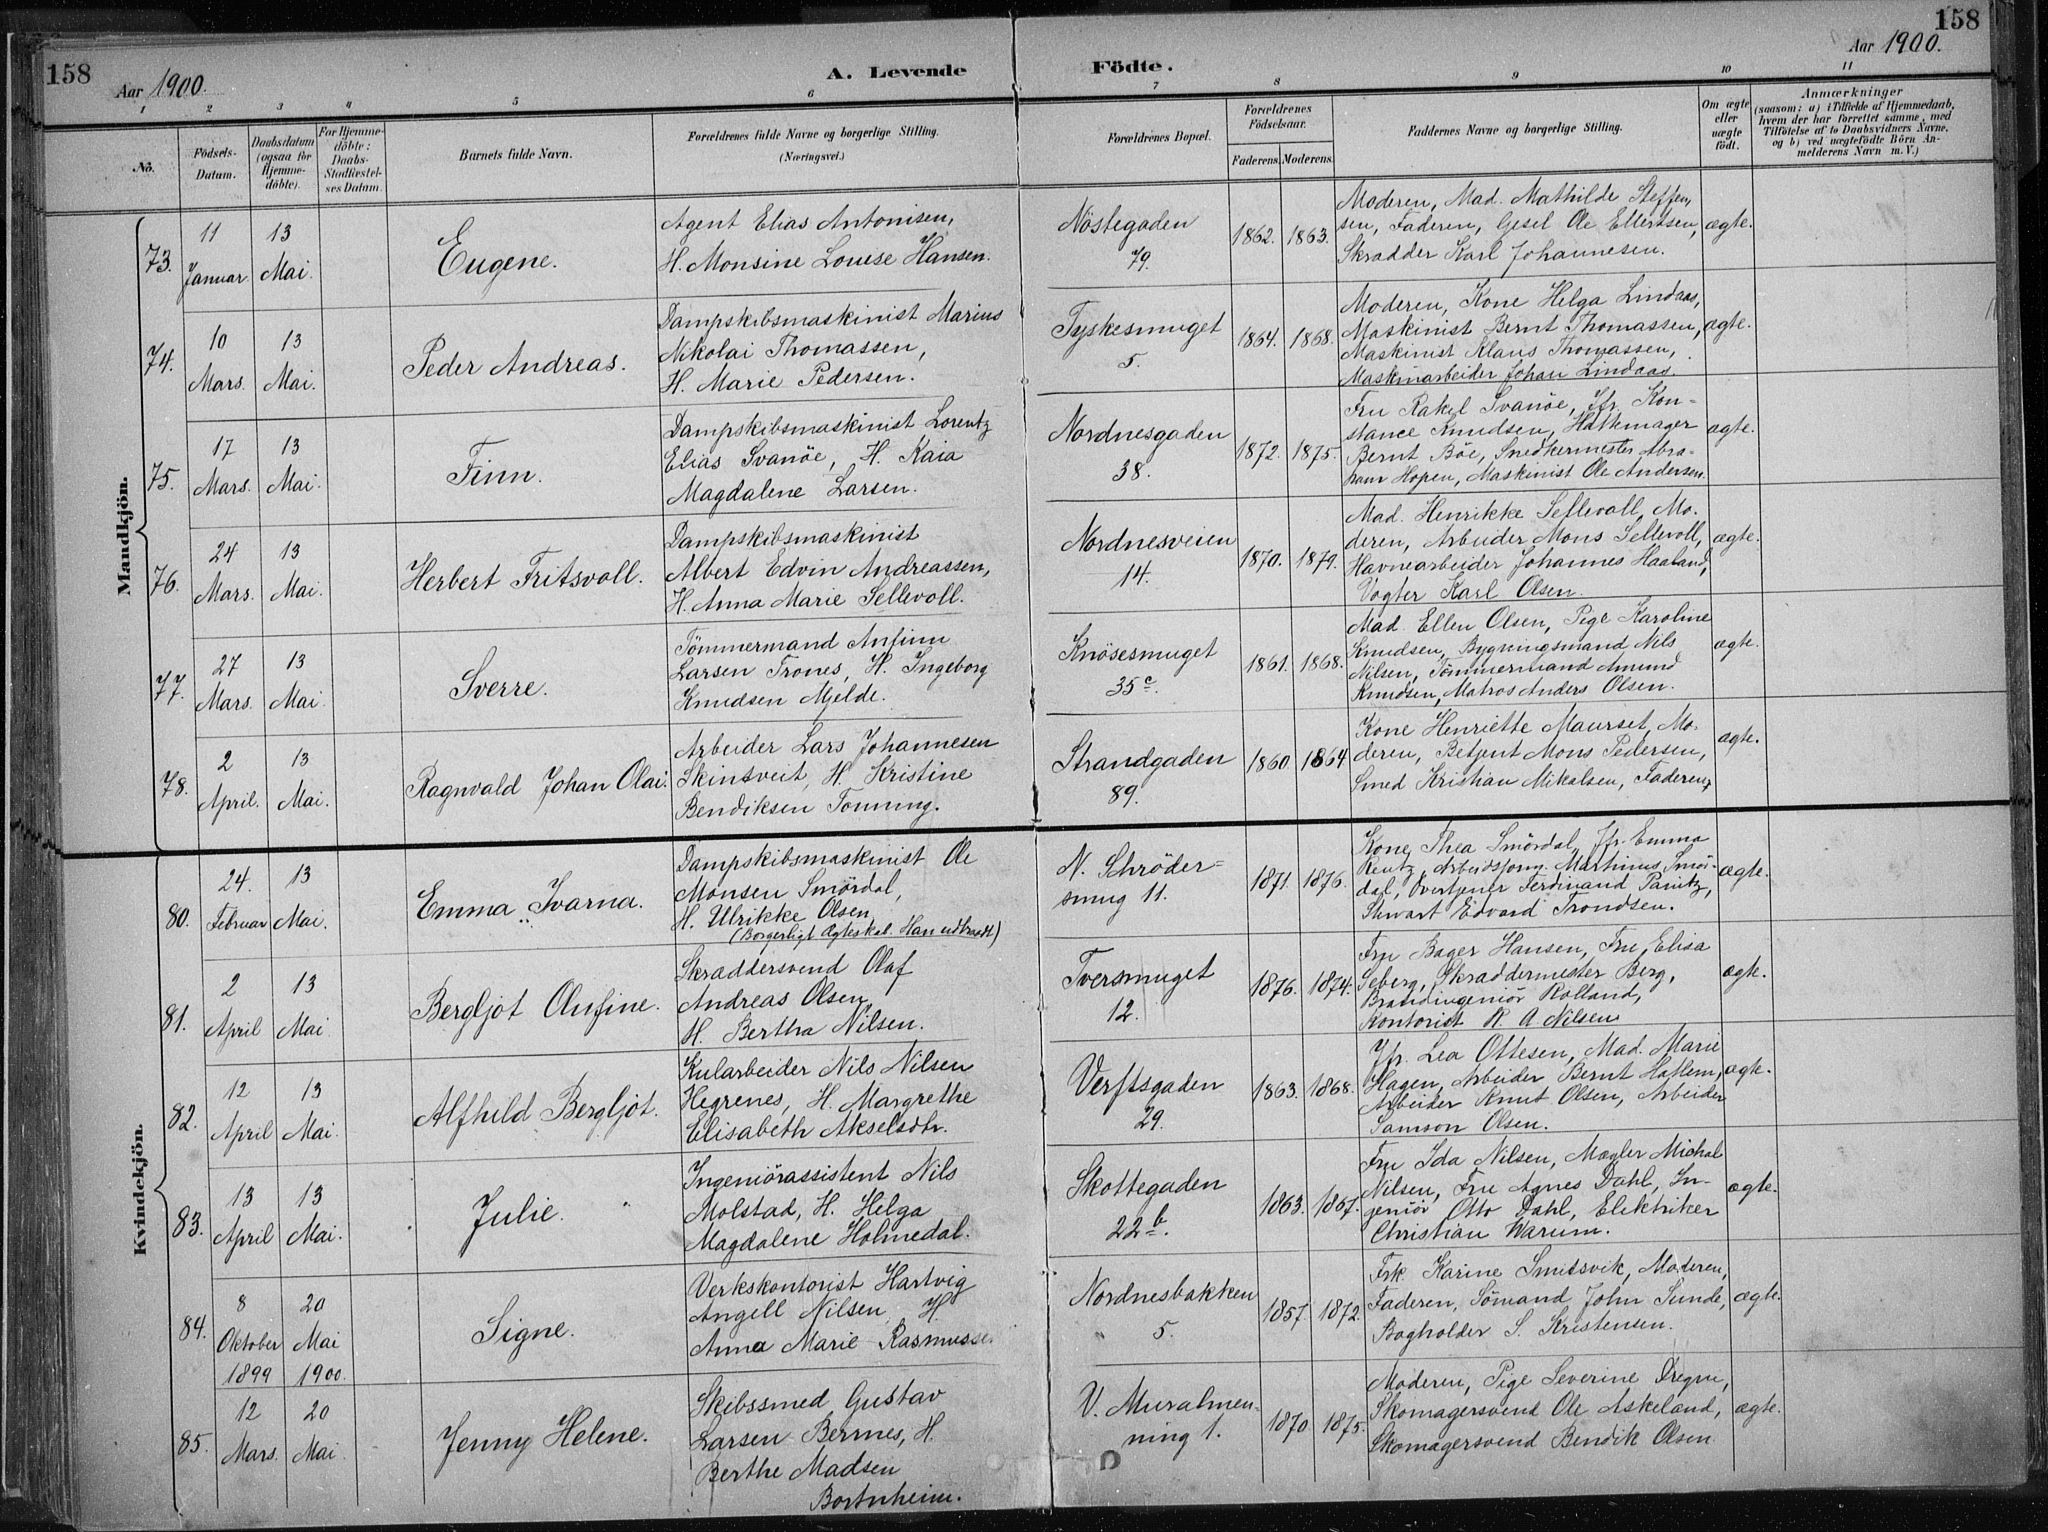 158
Aar 1900.
A. Levende
Födte.
Aar 1900.
158
1 2 3 4 5 6 7 8 9 10 11
No.
Födsels-Datum.
Daabsdatum (ogsaa for Hjemme-döbte).
For Hjemme-döbte: Daabs-Stadfæstel-ses Datum.
Barnets fulde Navn.
Forældrenes fulde Navne og borgerlige Stilling.
(Næringsvei.)
Forældrenes Bopæl.
Forældrenes Födselsaar.
Faderens. Moderens.
Faddernes Navne og borgerlige Stilling.
Om ægte eller uægte födt.
Anmærkninger
(saasom: a) i Tilfælde af Hjemmedaab, hvem der har forrettet samme, med Tilföielse af to Daabsvidners Navne, og b) ved uægtefödte Börn An-melderens Navn m. V.)
Mandkjön.
73.
11 Januar
13 Mai.
Eugene.
Agent Elias Antonisen,
H. Monsine Louise Hansen.
Nöstegaden
79.
1862. 1863.
Moderen, Mad. Mathilde Steffen-
sen, Faderen, Gesel Ole Ellertsen,
Skrædder Karl Johannesen.
ægte.
74.
10 Mars.
13 Mai.
Peder Andreas.
Dampskibsmaskinist Marius
Nikolai Thomassen,
H. Marie Pedersen.
Tyskesmuget
5.
1864. 1868.
Moderen, Kone Helga Lindaas,
Maskinist Bernt Thomassen,
Maskinist Klaus Thomassen,
Maskinarbeider Johan Lindaas
ægte.
75.
17 Mars.
13 Mai.
Finn.
Dampskibsmaskinist Lorentz
Elias Svanöe, H. Kaia
Magdalene Larsen.
Nordnesgaden
38.
1872. 1875.
Fru Rakel Svanöe, Jfr. Kon-
stance Knudsen, Hattemager
Bernt Böe, Snedkermester Abra-
ham Hopen, Maskinist Ole Andersen.
ægte.
76.
24 Mars.
13 Mai.
Herbert Fritsvoll.
Dampskibsmaskinist
Albert Edvin Andreassen,
H. Anna Marie Sellevoll.
Nordnesveien
14.
1870. 1879.
Mad. Henrikke Sellevoll, Mo-
deren, Arbeider Mons Sellevoll,
Havnearbeider Johannes Haaland,
Vogter Karl Olsen.
ægte.
77.
27 Mars.
13 Mai.
Sverre.
Tömmermand Anfinn
Larsen Trones, H. Ingeborg
Knudsen Mjelde.
Knösesmuget
35c.
1861. 1868.
Mad. Ellen Olsen, Pige Karoline
Knudsen, Bygningsmand Nils
Nilsen, Tömmermand Amund
Knudsen, Matros Anders Olsen.
ægte.
78.
2 April.
13 Mai.
Ragnvald Johan Olai.
Arbeider Lars Johannesen
Skinsveit, H. Kristine
Bendiksen Tonning.
Strandgaden
89.
1860 1864
Kone Henriette Maurset, Mo-
deren, Betjent Mons Pedersen,
Smed Kristian Mikalsen, Faderen.
ægte.
Kvindekjön.
80.
24. Februar
13 Mai.
Emma Ivarna.
Dampskibsmaskinist Ole
Monsen Smördal,
H. Ulrikke Olsen
(Borgerligt Ægteskab. Han udtraadt)
N. Schröder-
smug 11.
1871. 1876.
Kone Thea Smördal, Jfr. Emma
Rentz, Arbeidsform. Martinus Smör-
dal, Overtjener Ferdinand Panitz,
Stewart Edvard Trondsen.
ægte.
81.
2 April
13 Mai
Bergljot Olufine.
Skræddersvend Olaf
Andreas Olsen,
H. Bertha Nilsen.
Tversmuget
12.
1876. 1874.
Fru Bager Hansen, Fru Elisa
Seberg, Skræddermester Berg,
Brandingeniör Rolland,
Kontorist R. A Nilsen
ægte.
82.
12 April
13 Mai.
Alfhild Bergljot.
Kularbeider Nils Nilsen
Hegrenes, H. Margrethe
Elisabeth Akselsdtr.
Verftsgaden
29.
1863. 1868.
Jfr. Lea Ottesen, Mad. Marie
Hagen, Arbeider Bernt Hatlem,
Arbeider Knut Olsen, Arbeider
Samson Olsen.
ægte.
83.
13 April
13 Mai.
Julie.
Ingeniörassistent Nils
Molstad, H. Helga
Magdalene Holmedal.
Skottegaden
22b.
1863. 1867.
Fru Ida Nilsen, Mægler Michal
Nilsen, Fru Agnes Dahl, In-
geniör Otto Dahl, Elektriker
Christian Warum.
ægte.
84.
8 Oktober 1899
20 Mai 1900.
Signe.
Verkskontorist Hartvig
Angell Nilsen, H.
Anna Marie Rasmusse.
Nordnesbakken
5.
1857. 1872.
Frk. Karine Smitsvik, Moderen,
Faderen, Sömand John Sunde,
Bogholder S. Kristensen.
ægte.
85.
12 Mars.
20 Mai
Jenny Helene.
Skibssmed Gustav
Larsen Bermes, H.
Berthe Madsen
Bortnheim.
V. Muralmen-
ning 1.
1870 1875.
Moderen, Pige Severine Dregni,
Skomagersvend Ole Askeland,
Skomagersvend Bendik Olsen
ægte.